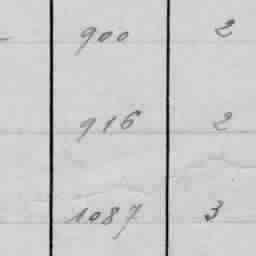 900 2
916 2
1087 3